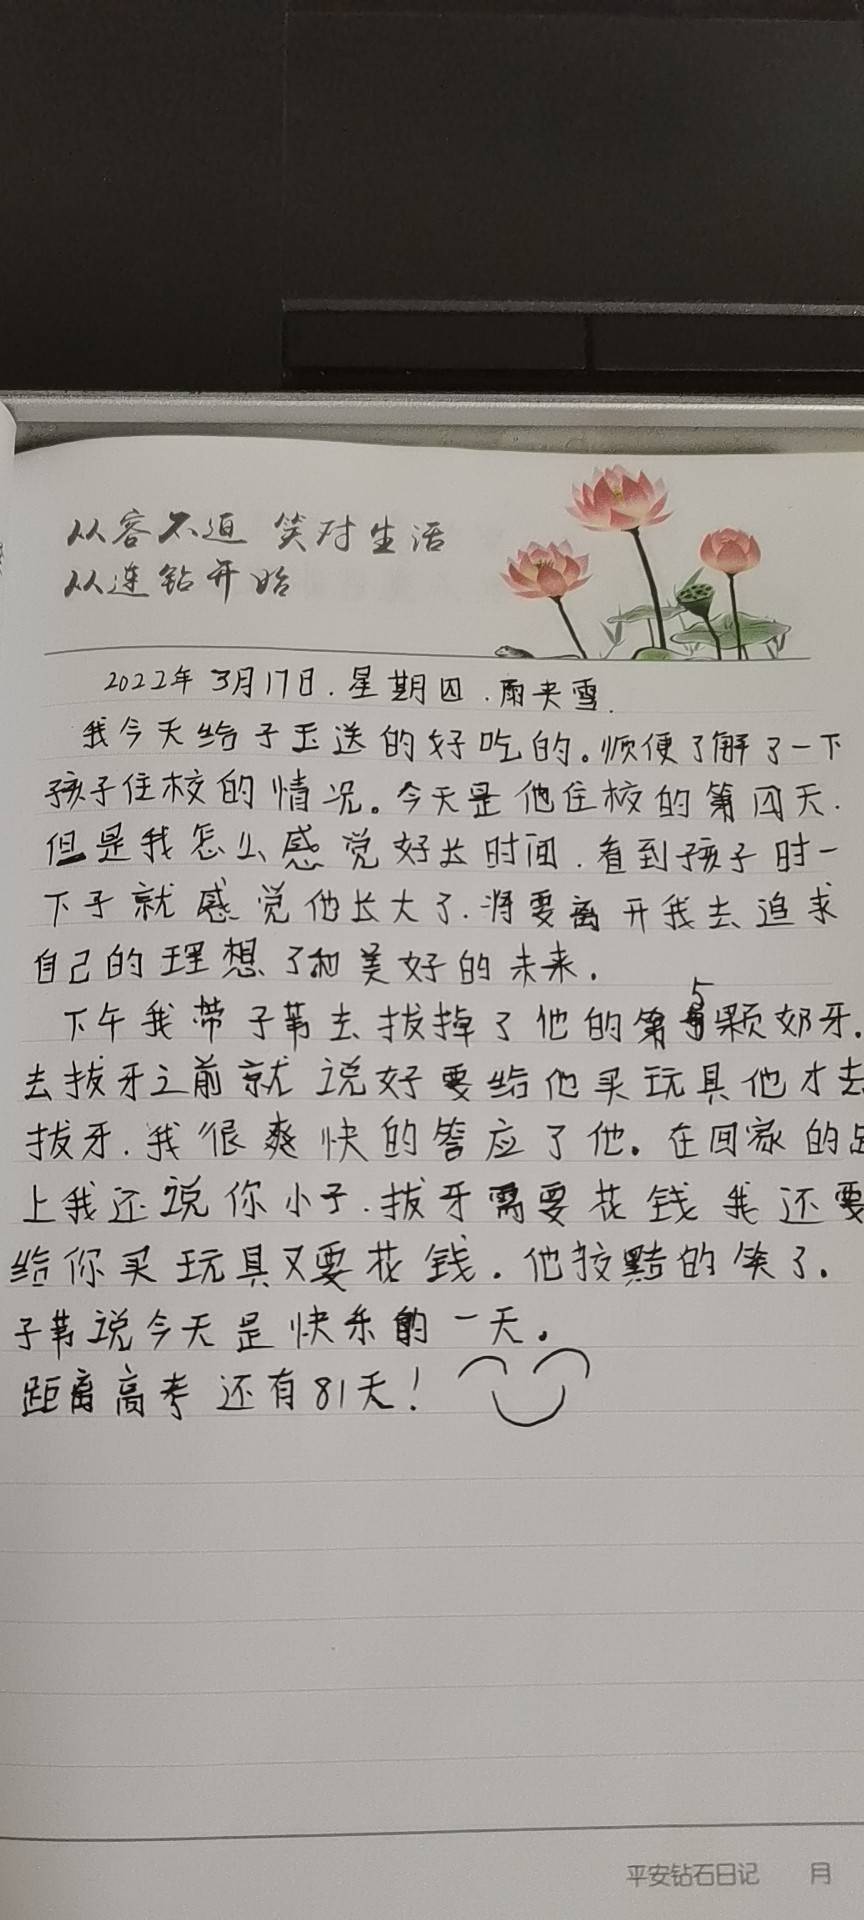 从容不迫 笑对生活
从连钻开始
2022年3月17日.星期四.雨夹雪.
我今天给子玉送的好吃的。顺便了解了一下
孩子住校的情况。今天是他住校的第四天.
但是我怎么感觉好长时间.看到孩子时一
下子就感觉他长大了.将要离开我去追求
自己的理想了和美好的未来.
下午我带子苇去拔掉了他的第5颗奶牙.
去拔牙之前就说好要给他买玩具他才去
拔牙.我很爽快的答应了他。在回家的
上我还说你小子.拔牙需要花钱我还要
给你买玩具又要花钱.他狡黠的笑了.
子苇说今天是快乐的一天。
距离高考还有81天!
平安钻石日记 月